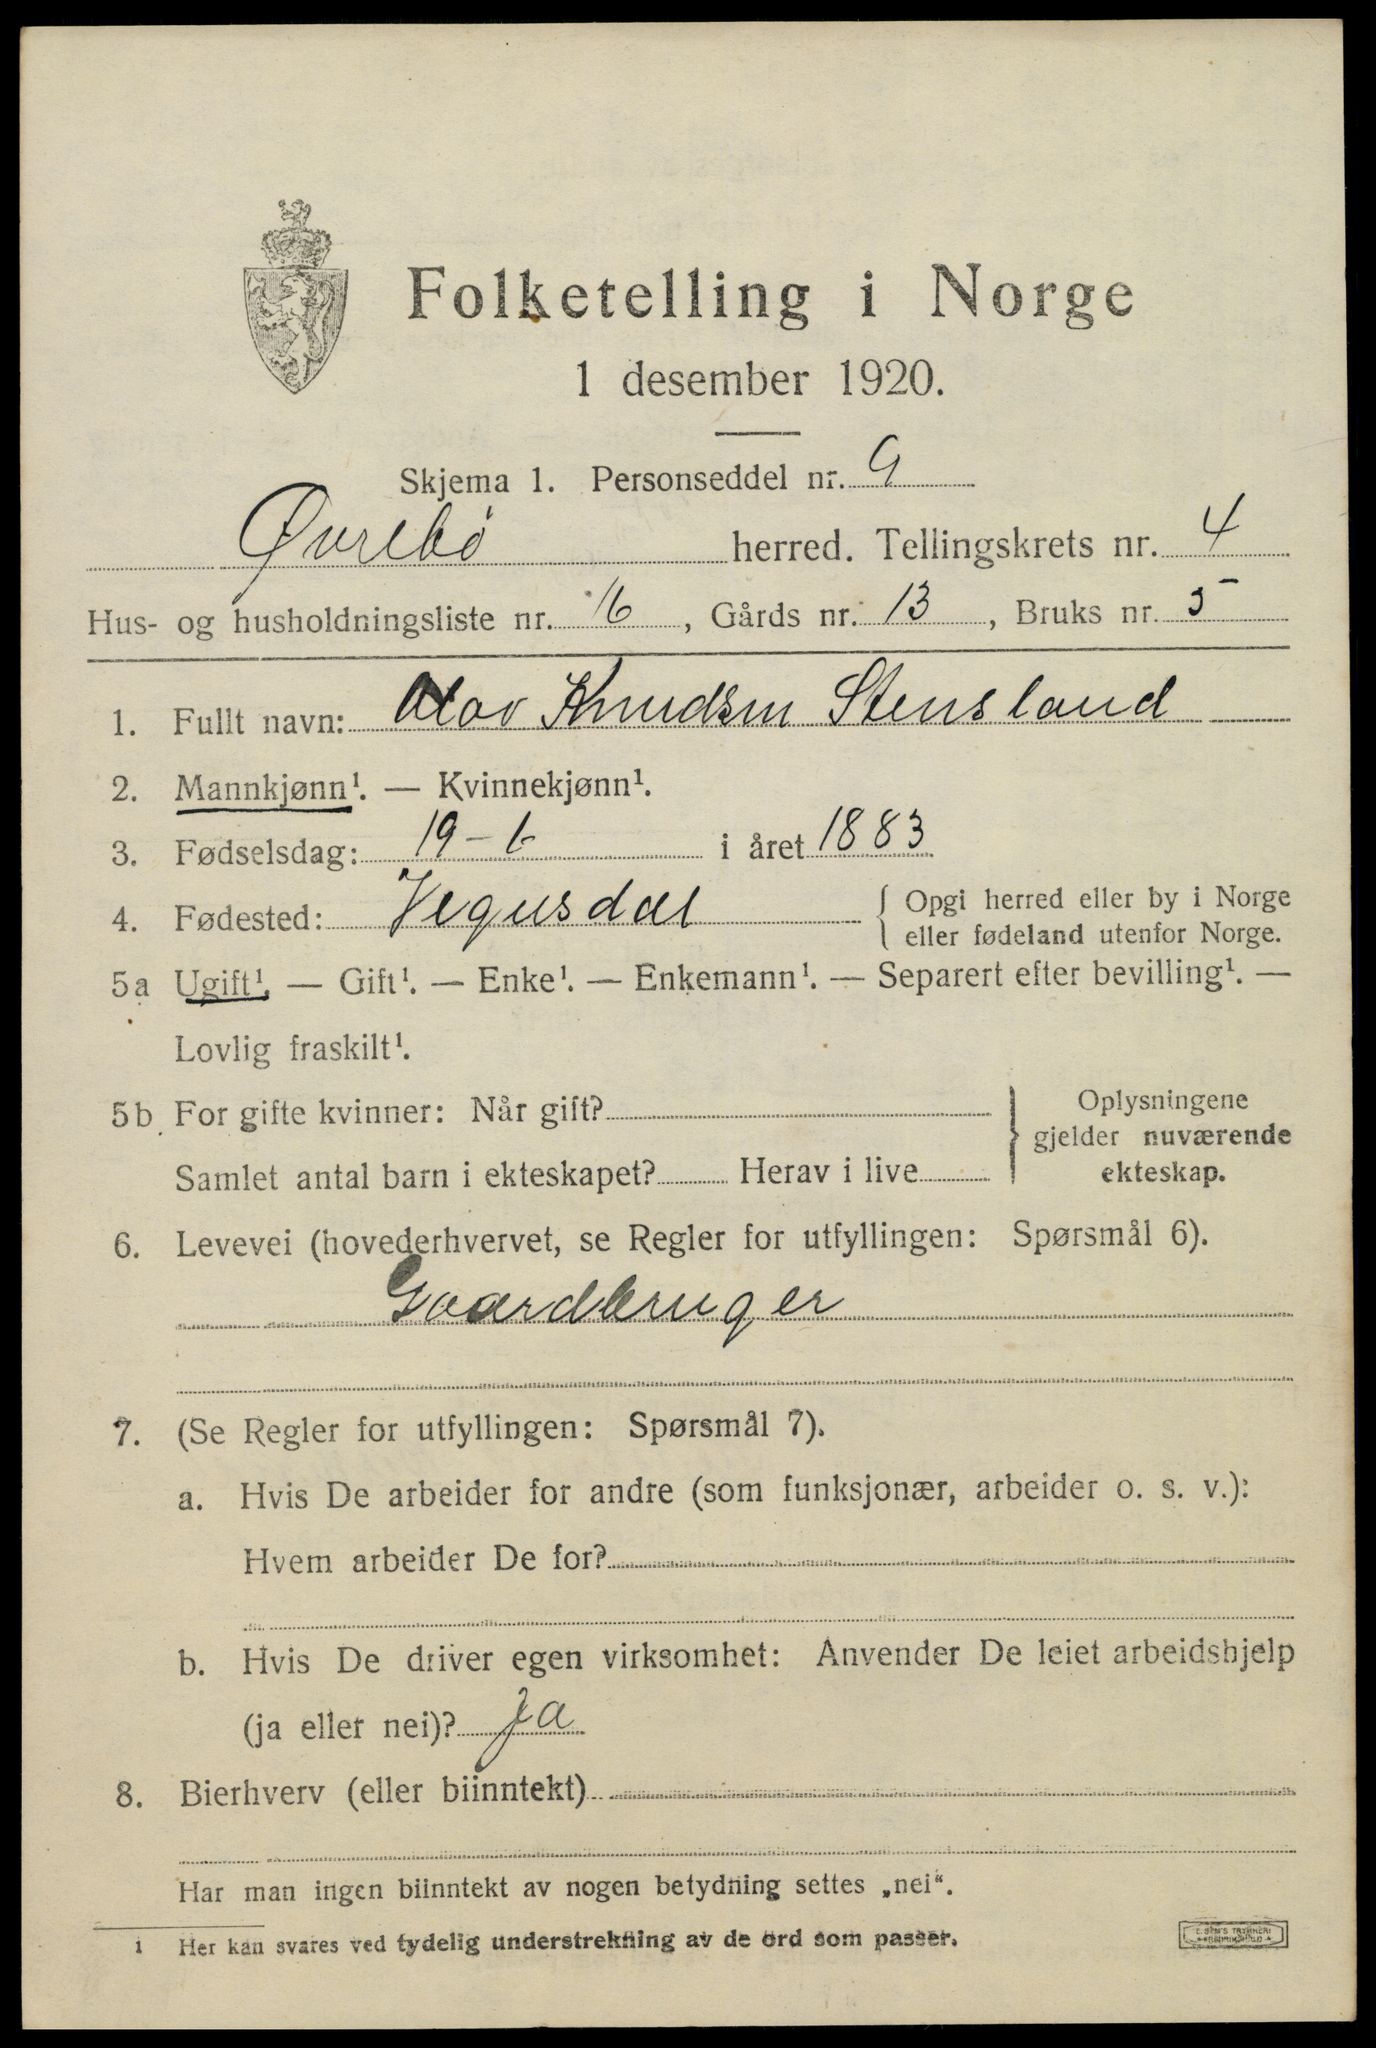 Folketelling i Norge
1 desember 1920.
Skjema 1. Personseddel nr. 9
Øvrebø herred. Tellingskrets nr. 4
Hus- og husholdningsliste nr. 16, Gårds nr. 13, Bruks nr. 5
1. Fullt navn: Olav Knudsen Stensland
2. Mannkjønn¹. — Kvinnekjønn¹.
3. Fødselsdag: 19-6 i året 1883
4. Fødested: Vegusdal { Opgi herred eller by i Norge
eller fødeland utenfor Norge.
5a Ugift¹. — Gift¹. — Enke¹. — Enkemann¹. — Separert efter bevilling¹. —
Lovlig fraskilt¹.
5b For gifte kvinner: Når gift? } Oplysningene
gjelder nuværende
Samlet antal barn i ekteskapet? Herav i live ekteskap.
6. Levevei (hovederhvervet, se Regler for utfyllingen: Spørsmål 6).
Gaardbruger
7. (Se Regler for utfyllingen: Spørsmål 7).
a. Hvis De arbeider for andre (som funksjonær, arbeider o. s. v.):
Hvem arbeider De for?
b. Hvis De driver egen virksomhet: Anvender De leiet arbeidshjelp
(ja eller nei)? Ja
8. Bierhverv (eller biinntekt)
Har man ingen biinntekt av nogen betydning settes „nei“.
1 Her kan svares ved tydelig understrekning av de ord som passer.